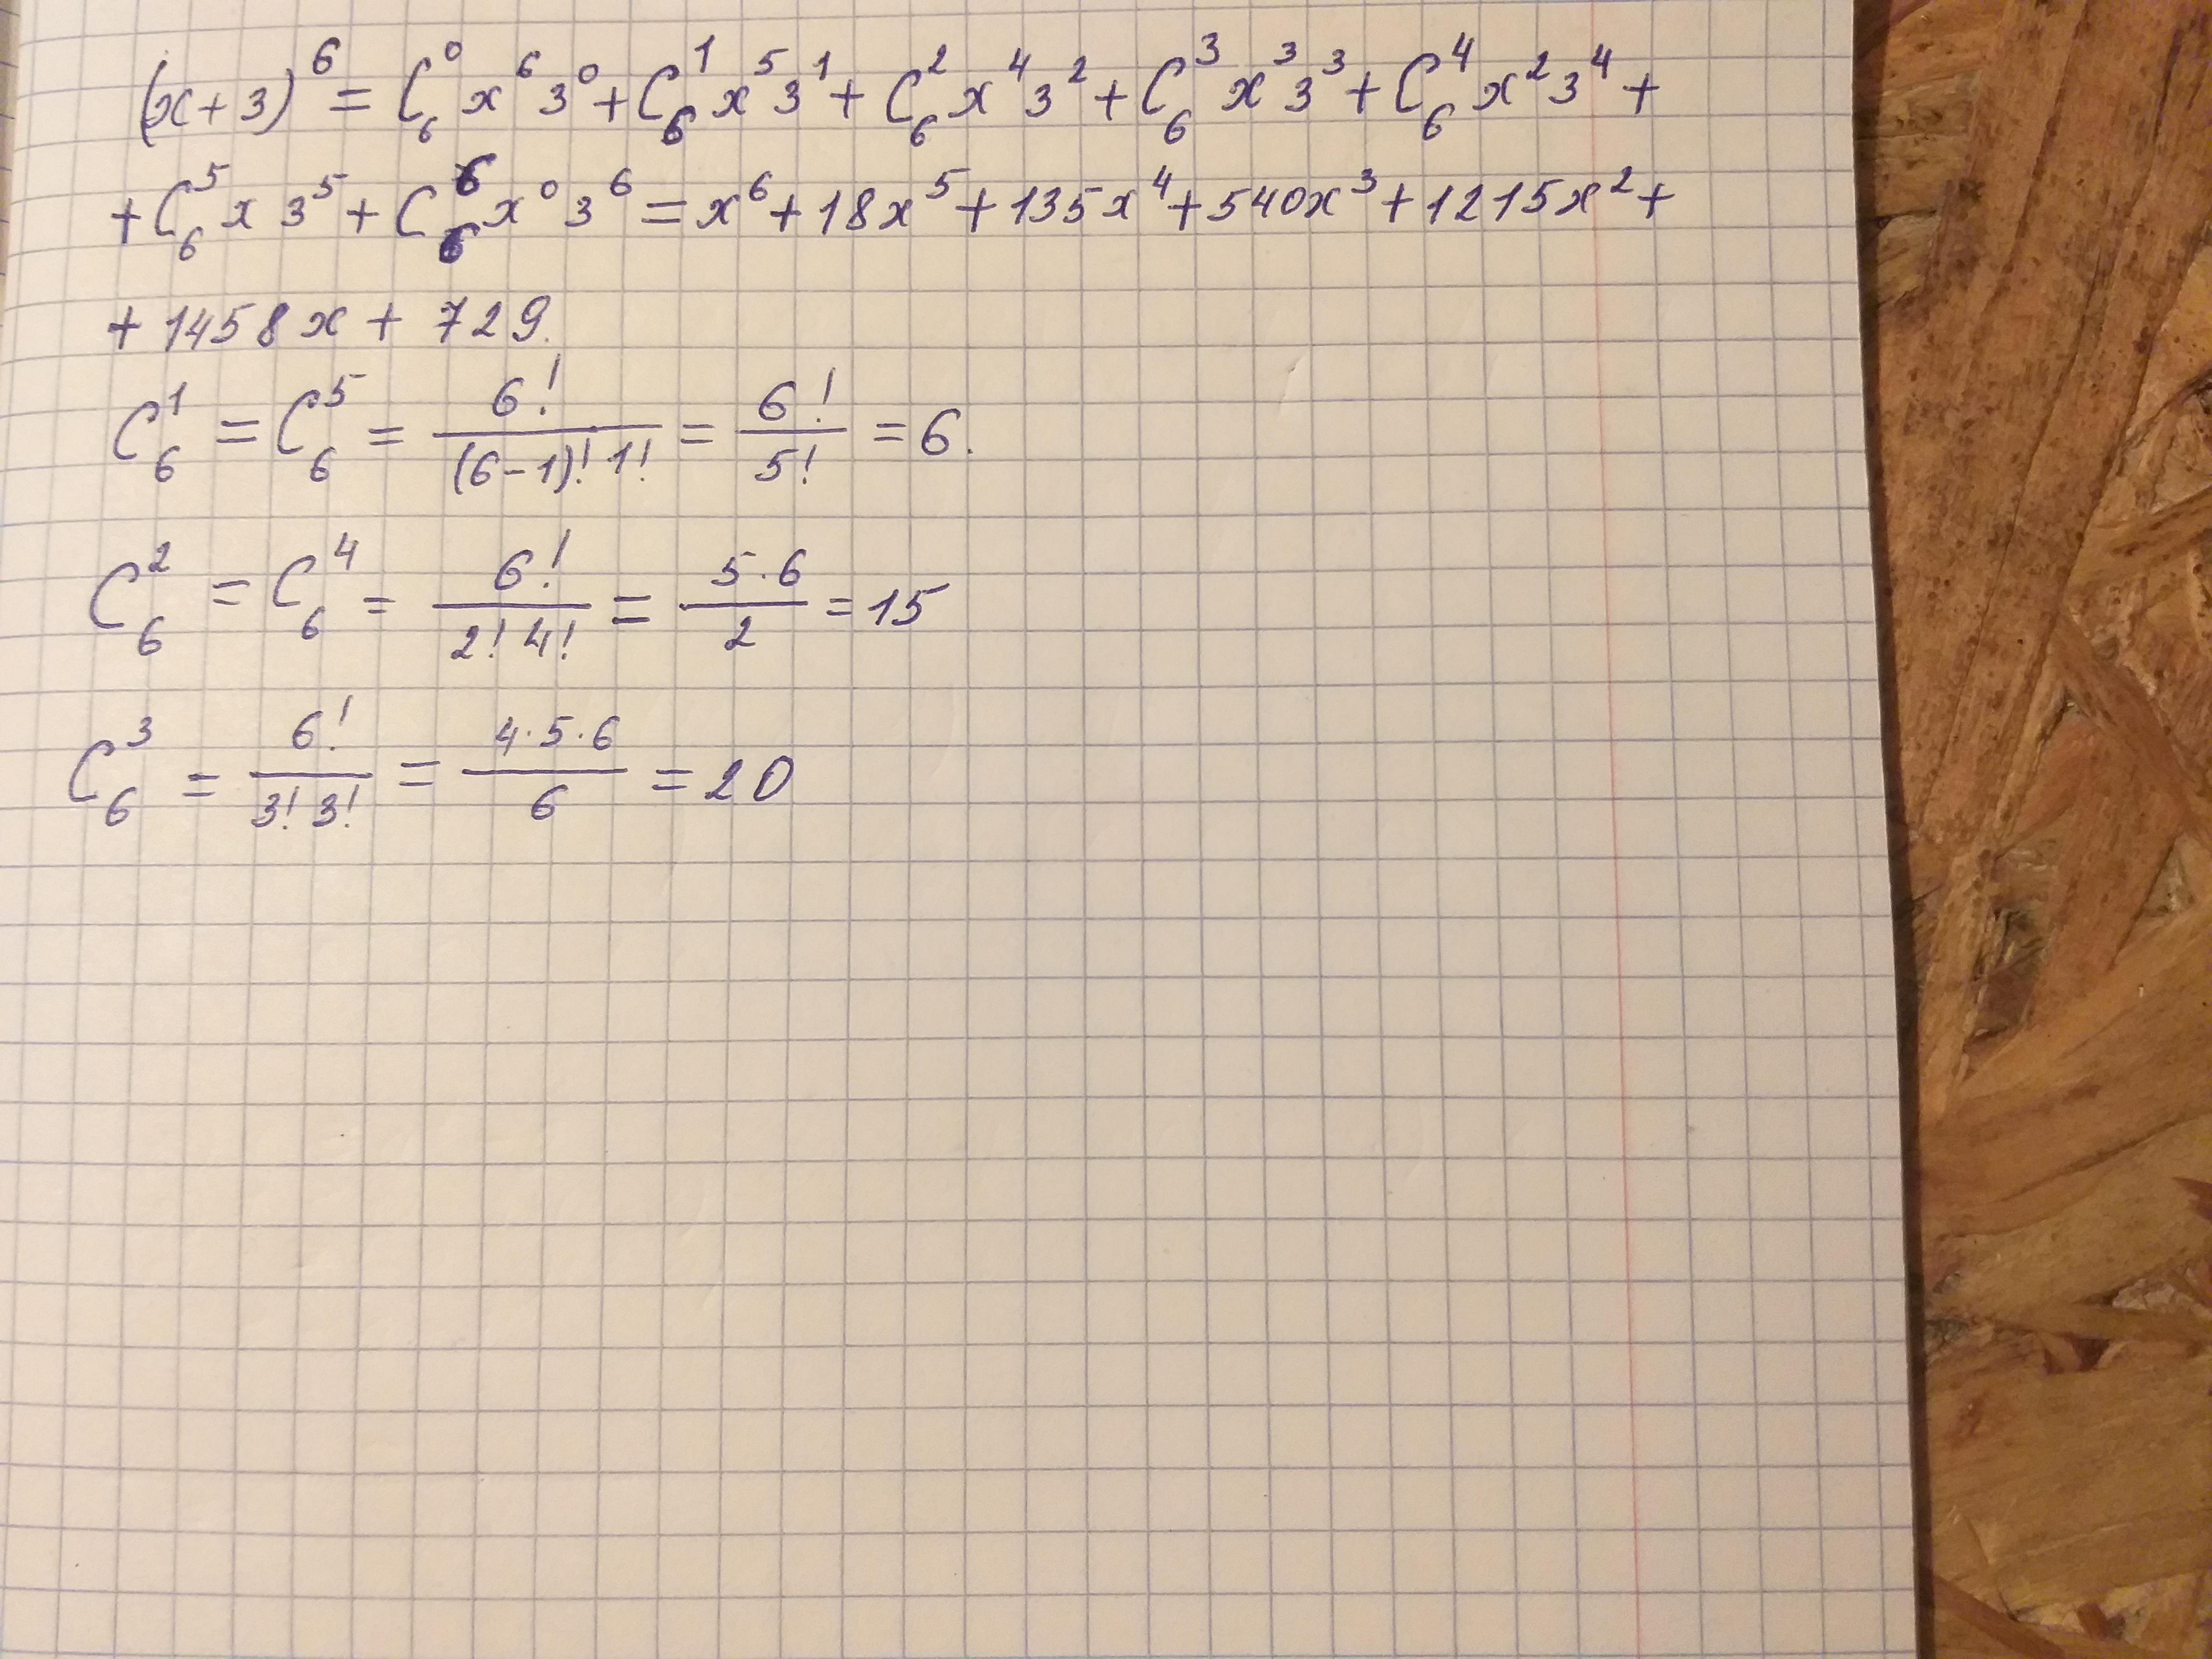 (x+3)⁶ = C₆⁰x⁶3⁰ + C₆¹x⁵3¹ + C₆²x⁴3² + C₆³x³3³ + C₆⁴x²3⁴ +
+ C₆⁵x 3⁵ + C₆⁶x⁰3⁶ = x⁶ + 18x⁵ + 135x⁴ + 540x³ + 1215x² +
+ 1458x + 729.
C₆¹ = C₆⁵ = 6!/((6-1)!·1!) = 6!/5! = 6.
C₆² = C₆⁴ = 6!/(2! 4!) = (5·6)/2 = 15
C₆³ = 6!/(3! 3!) = (4·5·6)/6 = 20